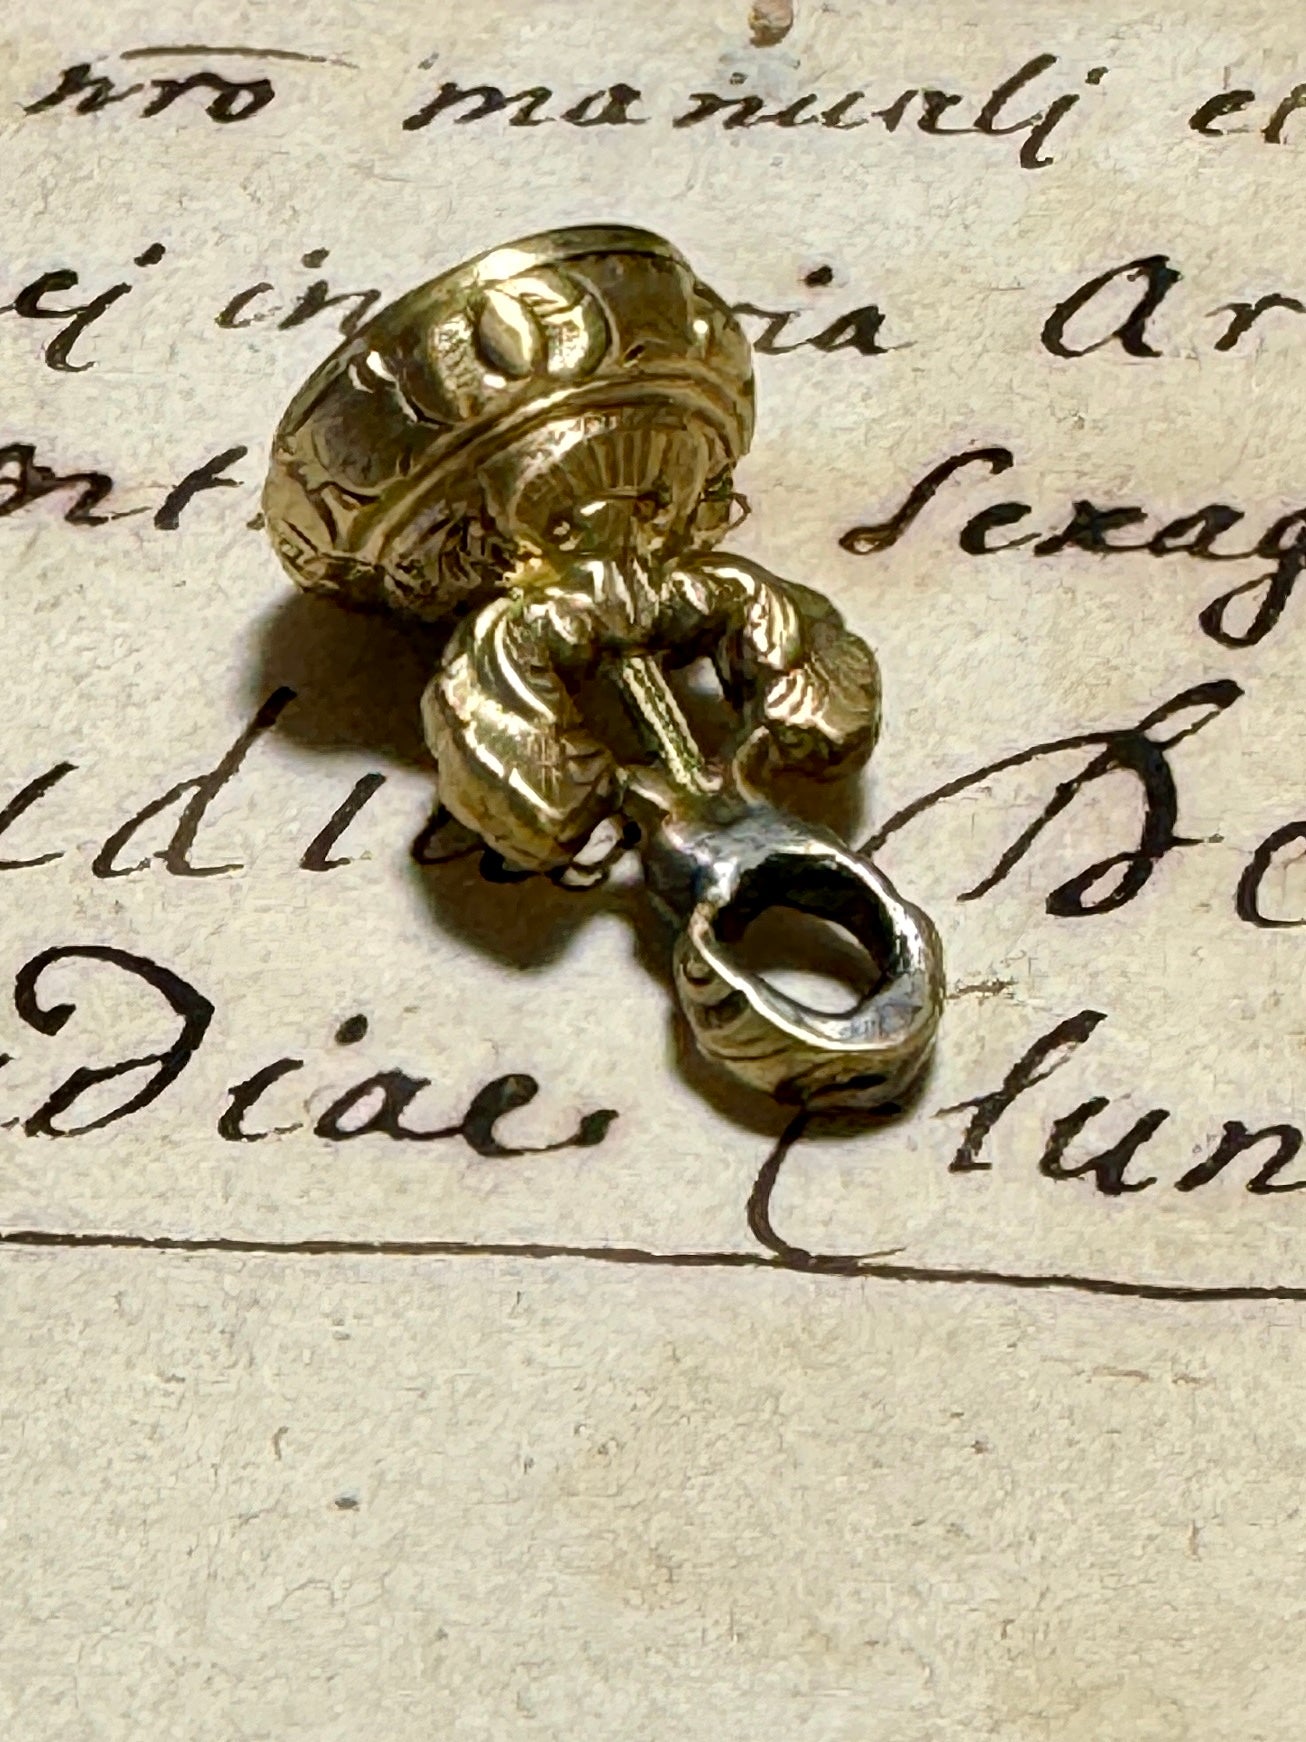 nrō manuali et
ej in ria Ar
ont. Sexag
idi Do
Diae lun